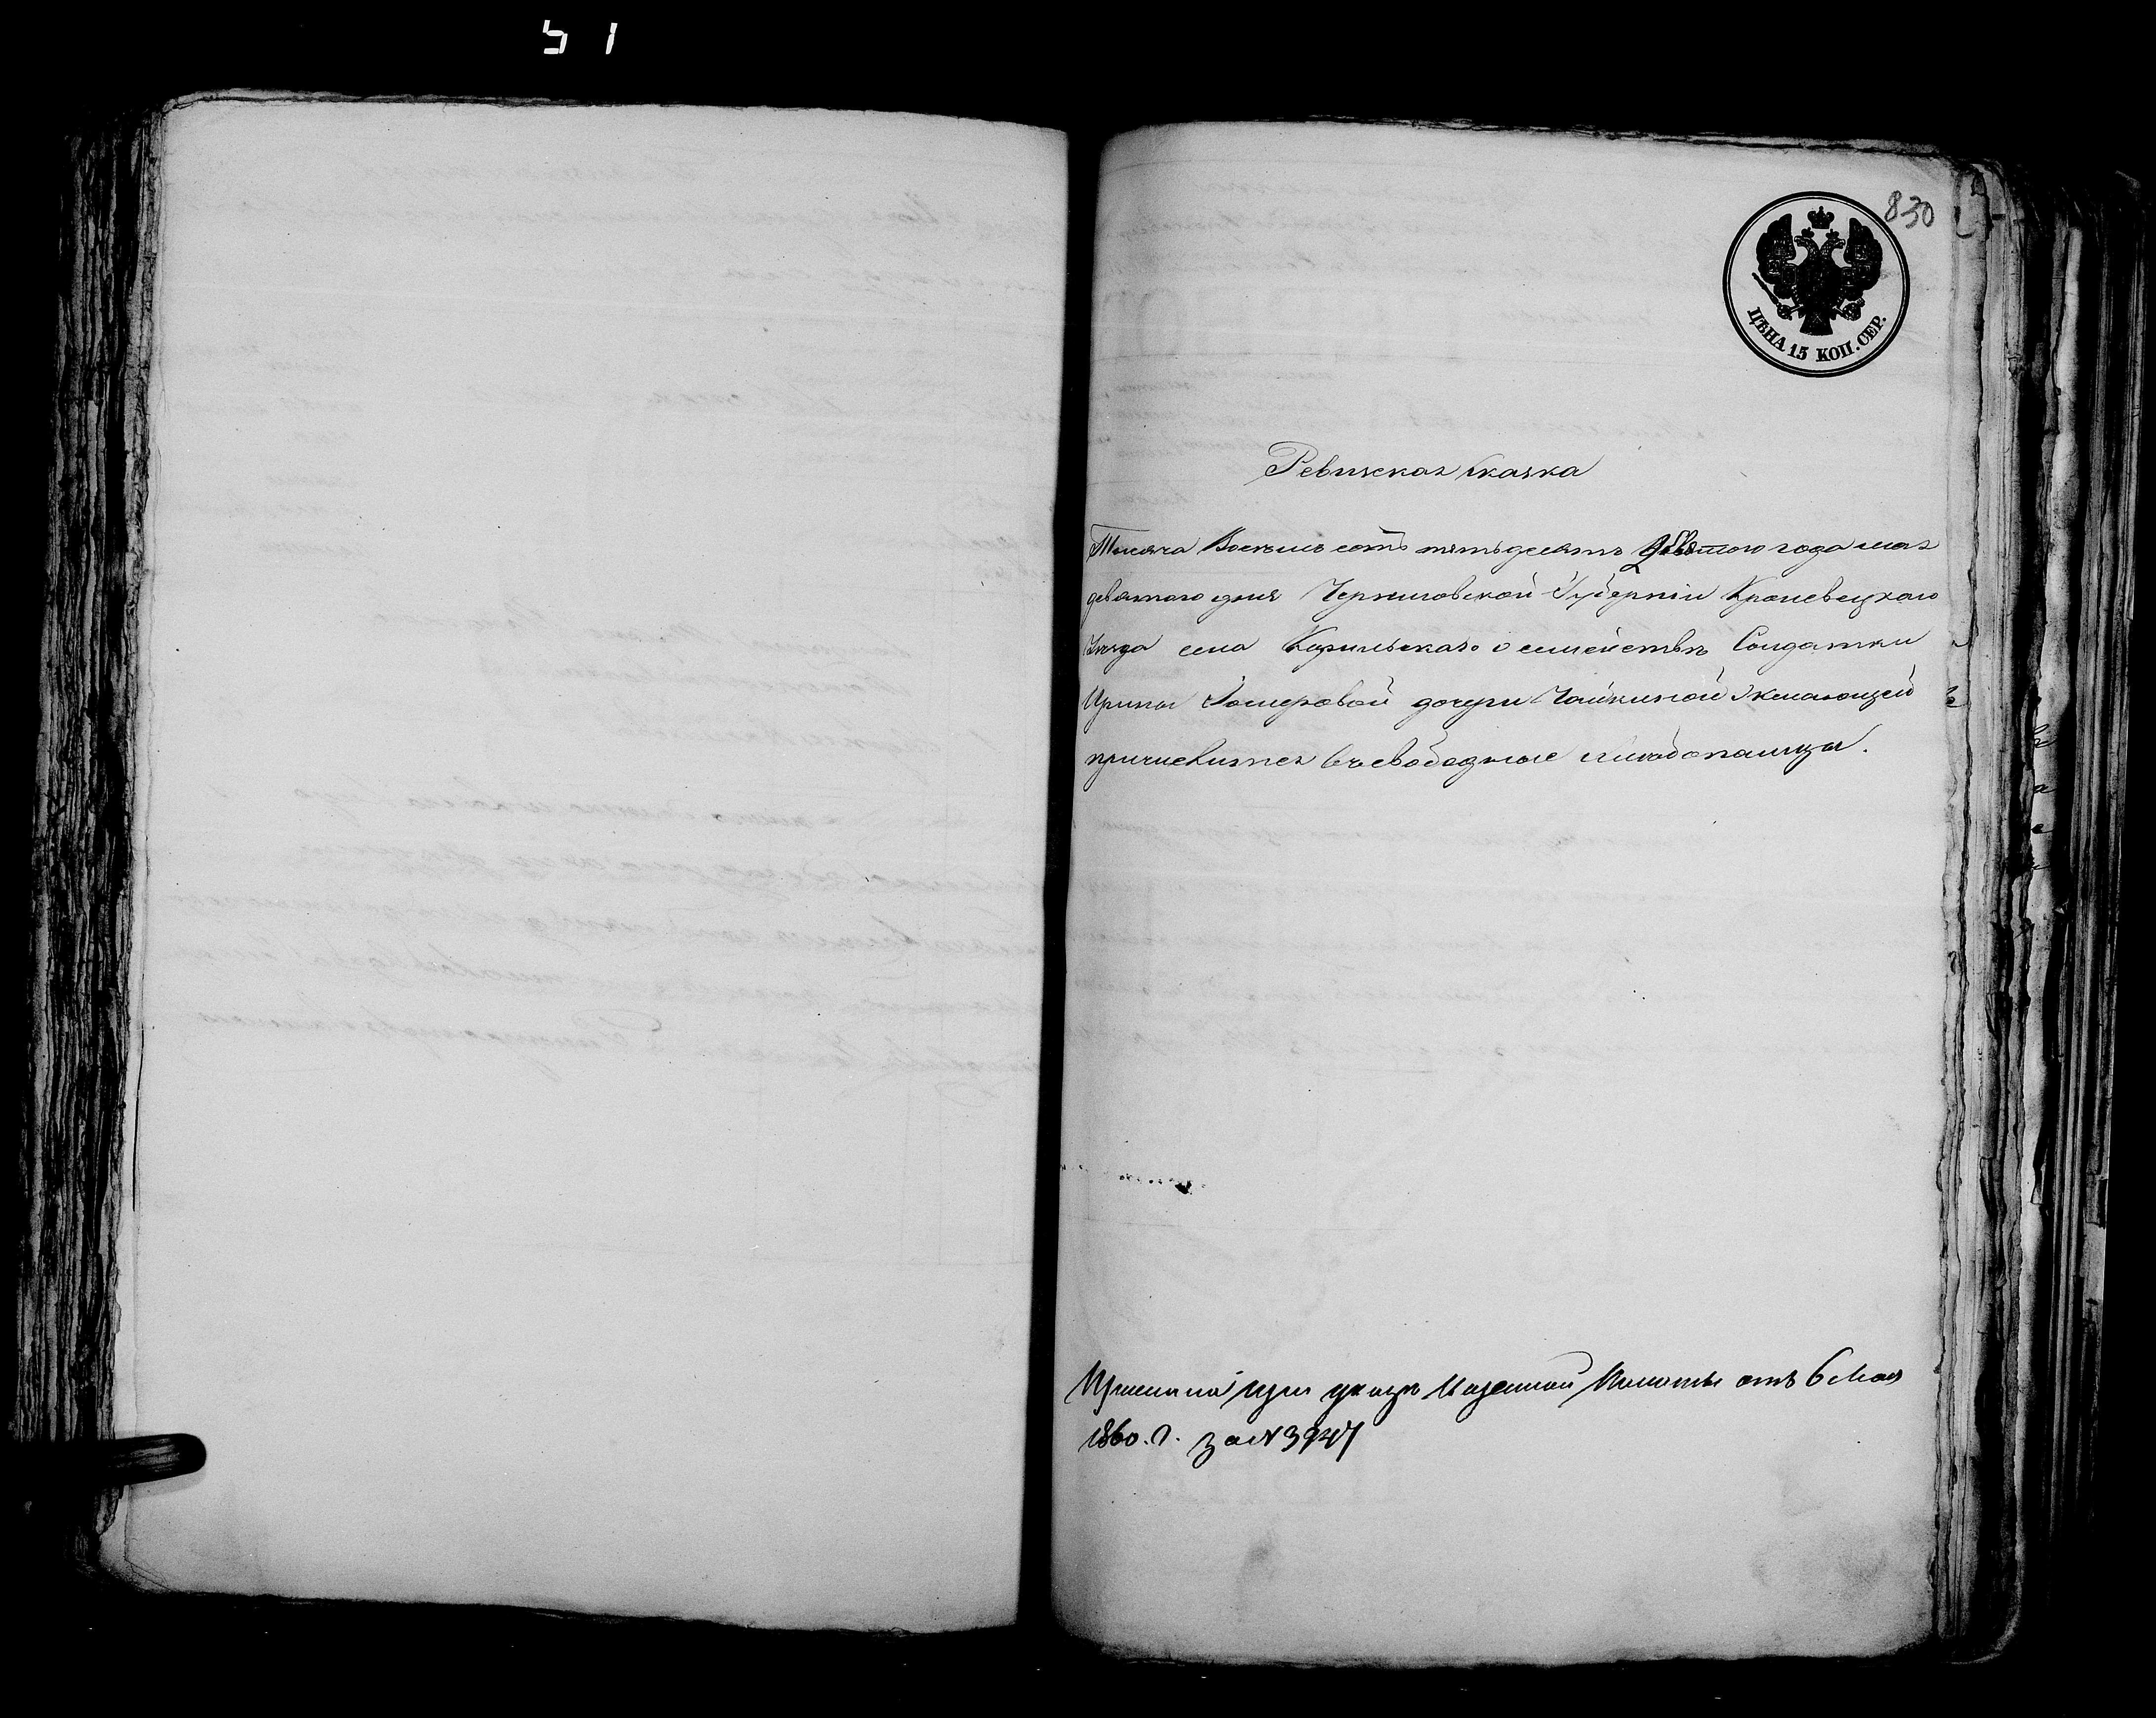 51
830
ЦѢНА 15 КОП. СЕР.
Ревизская сказка
Тысяча Восемь сотъ пятьдесятъ девятого года мая
девятого дня Черниговской Губерніи Кролевецкого
Уезда села Карыльского о семействѣ Солдатки
Ирины дочери Чайкиной желающей
причислится въ свободные хлѣбопашцы.
при указѣ Казенной Палаты отъ 6 Мая
1860. г. за №